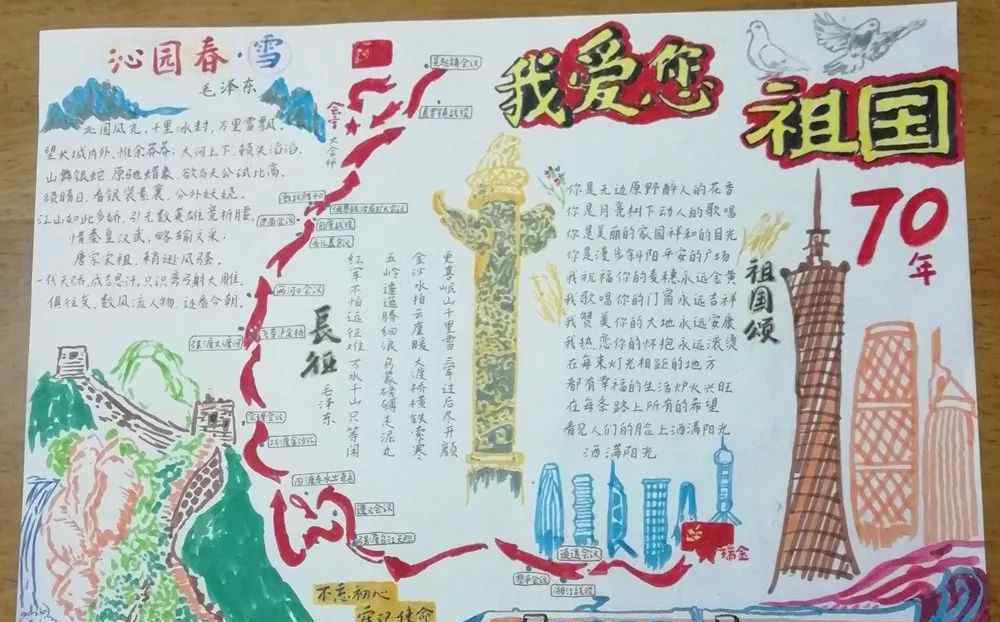 沁园春·雪
毛泽东
北国风光,千里冰封,万里雪飘。
望长城内外,惟余莽莽;大河上下,顿失滔滔。
山舞银蛇,原驰蜡象,欲与天公试比高。
须晴日,看银装素裹,分外妖娆。
江山如此多娇,引无数英雄竞折腰。
惜秦皇汉武,略输文采,
唐宗宋祖,稍逊风骚。
一代天骄,成吉思汗,只识弯弓射大雕。
俱往矣,数风流人物,还看今朝。
我爱您
祖国
70
年
長征
毛泽东
红军不怕远征难 万水千山只等闲
五岭逶迤腾细浪 乌蒙磅礴走泥丸
金沙水拍云崖暖 大渡桥横铁索寒
更喜岷山千里雪 三军过后尽开颜
祖国颂
你是无边原野醉人的花香
你是月亮树下动人的歌唱
你是美丽的家园祥和的目光
你是漫步斜阳平安的广场
我祝福你的麦穗永远金黄
我歌唱你的门窗永远吉祥
我赞美你的大地永远安康
我热恋你的怀抱永远滚烫
在每束灯光相距的地方
都有幸福的生活炉火兴旺
在每条路上所有的希望
看见人们的脸上洒满阳光
洒满阳光
两河口会议
会理会议
遵义会议
通道会议
黎平会议
湘江战役
瑞金
不忘初心
牢记使命